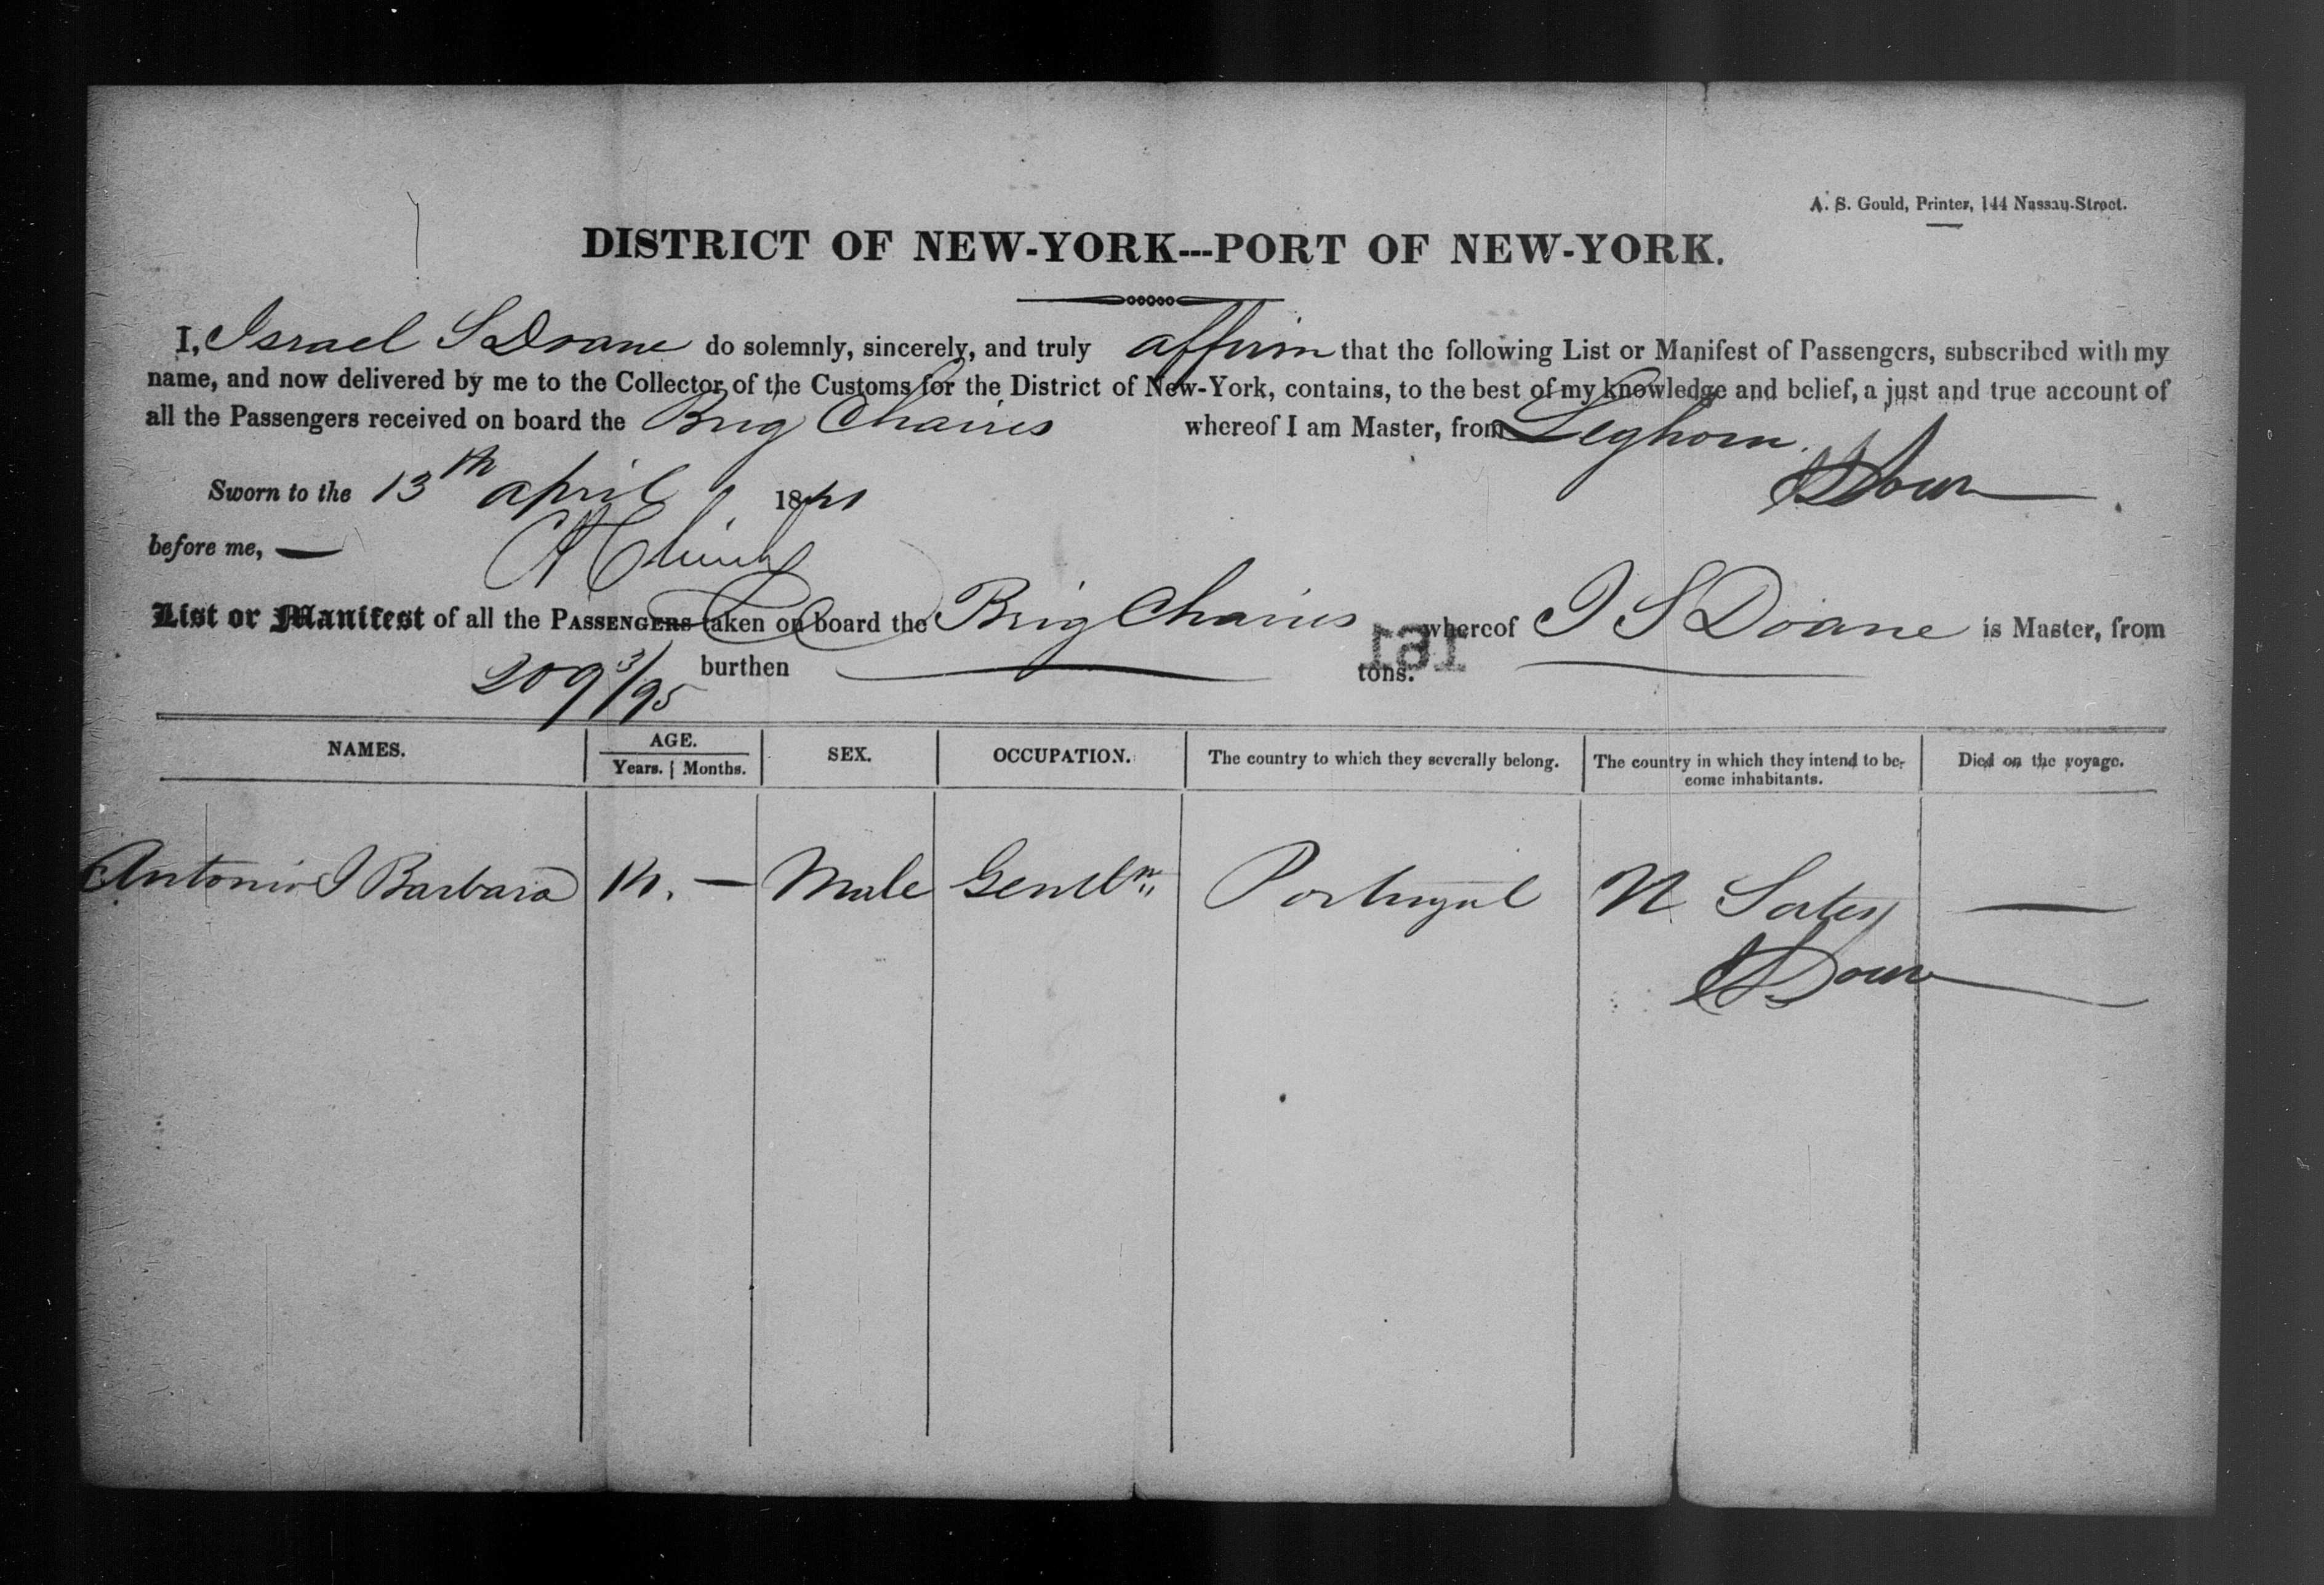 A. S. Gould, Printer, 144 Nassau-Street.
DISTRICT OF NEW-YORK---PORT OF NEW-YORK.
I, Israel S Doane do solemnly, sincerely, and truly affirm that the following List or Manifest of Passengers, subscribed with my
name, and now delivered by me to the Collector of the Customs for the District of New-York, contains, to the best of my knowledge and belief, a just and true account of
all the Passengers received on board the Brig Chaires whereof I am Master, from Leghorn.
Sworn to the 13th april 1841
I S Doane
before me,
List or Manifest of all the PASSENGERS taken on board the Brig Chaires whereof I S Doane is Master, from
209 3/95 burthen tons.
191
NAMES. AGE. SEX. OCCUPATION. The country to which they severally belong. The country in which they intend to become inhabitants. Died on the voyage.
Years. Months.
Antonio I Barbara — Male Gentlm Portugal —
I S Doane